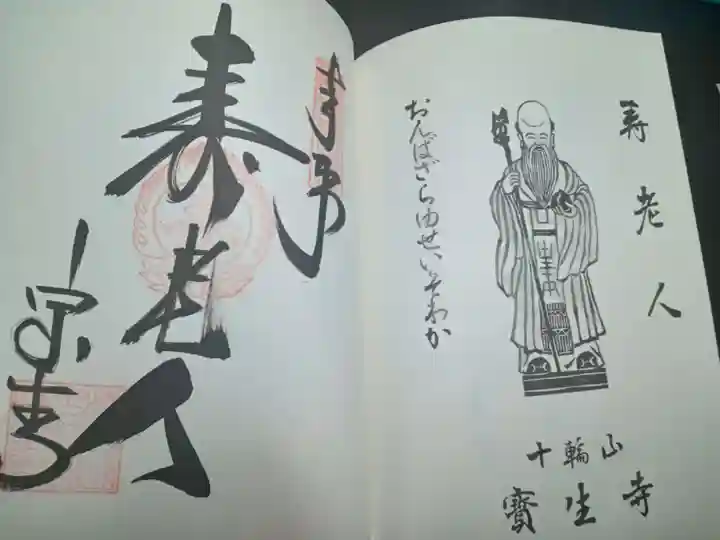 寿老人
おんばざらゆせいそわか
十輪山
寳生寺
奉拝
寿老人